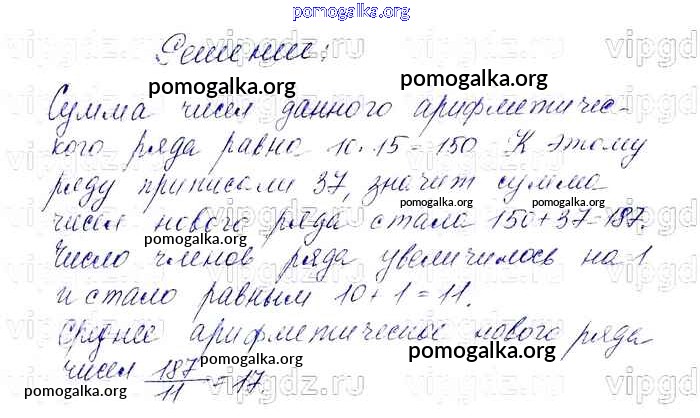 pomogalka.org
Решение:
pomogalka.org pomogalka.org
Сумма чисел данного арифметичес-
кого ряда равна 10·15=150 К этому
pomogalka.org
ряду приписали 37, значит сумма
чисел нового ряда стала 150+37=187.
pomogalka.org pomogalka.org
Число членов ряда увеличилось на 1
и стало равным 10+1=11.
среднее арифметическое нового ряда
pomogalka.org pomogalka.org
чисел 187/11=17.
pomogalka.org
vipgdz.ru